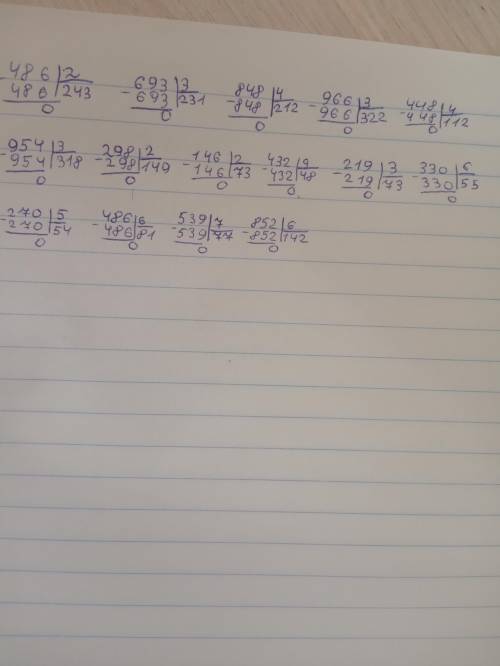 486 | 2 - 693 | 3 - 848 | 4 - 966 | 3 - 448 | 4
486 | 243 693 | 231 848 | 212 966 | 322 448 | 112
0 0 0 0 0
- 954 | 3 - 298 | 2 - 146 | 2 - 432 | 9 - 219 | 3 - 330 | 6
954 | 318 298 | 149 146 | 73 432 | 48 219 | 73 330 | 55
0 0 0 0 0 0
- 270 | 5 - 486 | 6 - 539 | 7 - 852 | 6
270 | 54 486 | 81 539 | 77 852 | 142
0 0 0 0